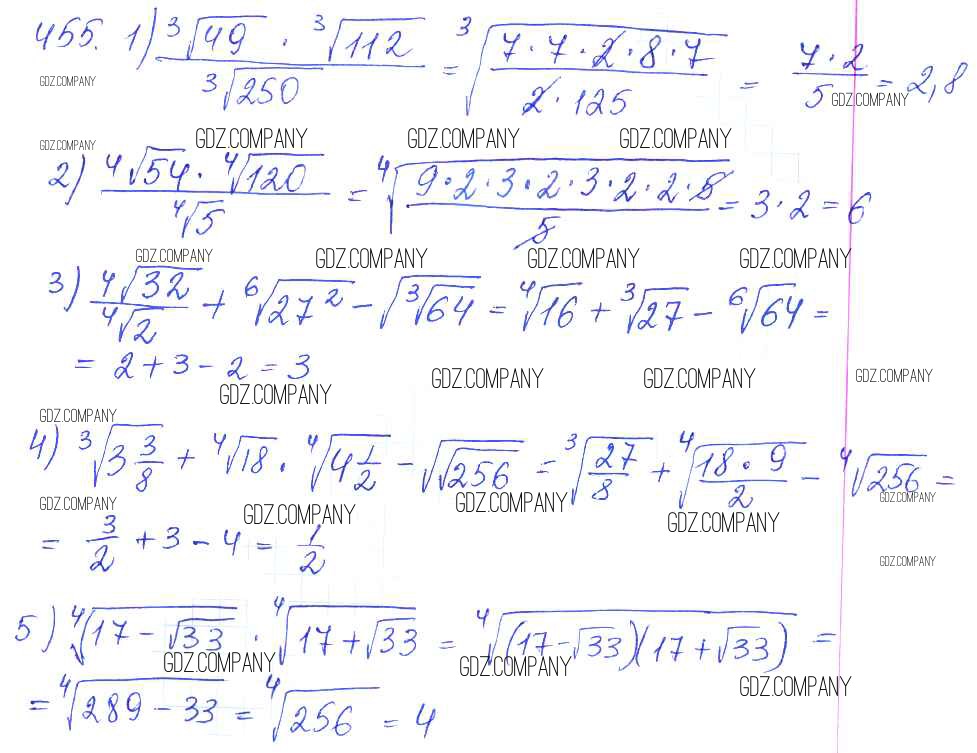 455. 1) ∛49 · ∛112 / ∛250 = ∛(7·7·2·8·7 / 2·125) = 7·2/5 = 2,8
GDZ.COMPANY GDZ.COMPANY
GDZ.COMPANY GDZ.COMPANY GDZ.COMPANY GDZ.COMPANY
2) ∜54 · ∜120 / ∜5 = ∜(9·2·3·2·3·2·2·5 / 5) = 3·2 = 6
GDZ.COMPANY GDZ.COMPANY GDZ.COMPANY GDZ.COMPANY
3) ∜32 / ∜2 + ⁶√27² − √∛64 = ∜16 + ∛27 − ⁶√64 =
= 2 + 3 − 2 = 3
GDZ.COMPANY GDZ.COMPANY GDZ.COMPANY GDZ.COMPANY
GDZ.COMPANY
4) ∛(3 3/8) + ∜18 · ∜(4 1/2) − √√256 = ∛(27/8) + ∜(18·9 / 2) − ∜256 =
GDZ.COMPANY GDZ.COMPANY GDZ.COMPANY GDZ.COMPANY GDZ.COMPANY
= 3/2 + 3 − 4 = 1/2
GDZ.COMPANY
5) ∜(17 − √33) · ∜(17 + √33) = ∜((17 − √33)(17 + √33)) =
GDZ.COMPANY GDZ.COMPANY GDZ.COMPANY
= ∜(289 − 33) = ∜256 = 4